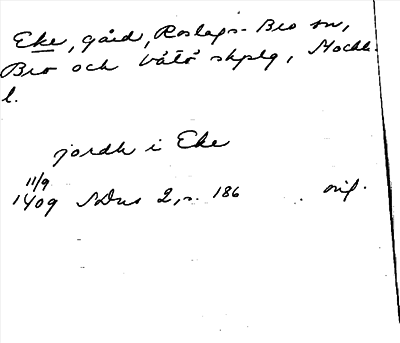 Eke, gård, Roslags-Bro sn,
Bro och Vätö skplg, Stockh.
l.
jordh i Eke
11/9
1409 SDns 2, s. 186 orig.